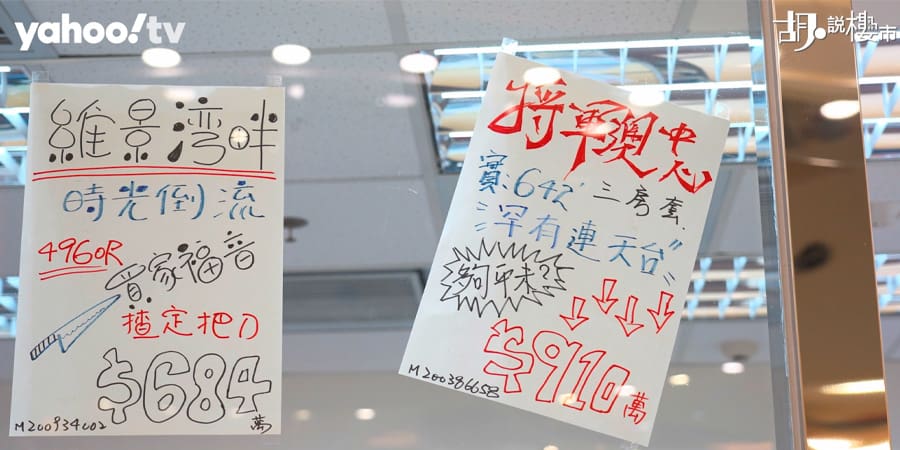 yahoo!tv
胡.說樓市
維景灣畔
時光倒流
496呎
買家福音
揸定把刀
$684萬
M200934002
將軍澳中心
實:642' 三房套
罕有連天台
夠平未?
$910萬
M200386658